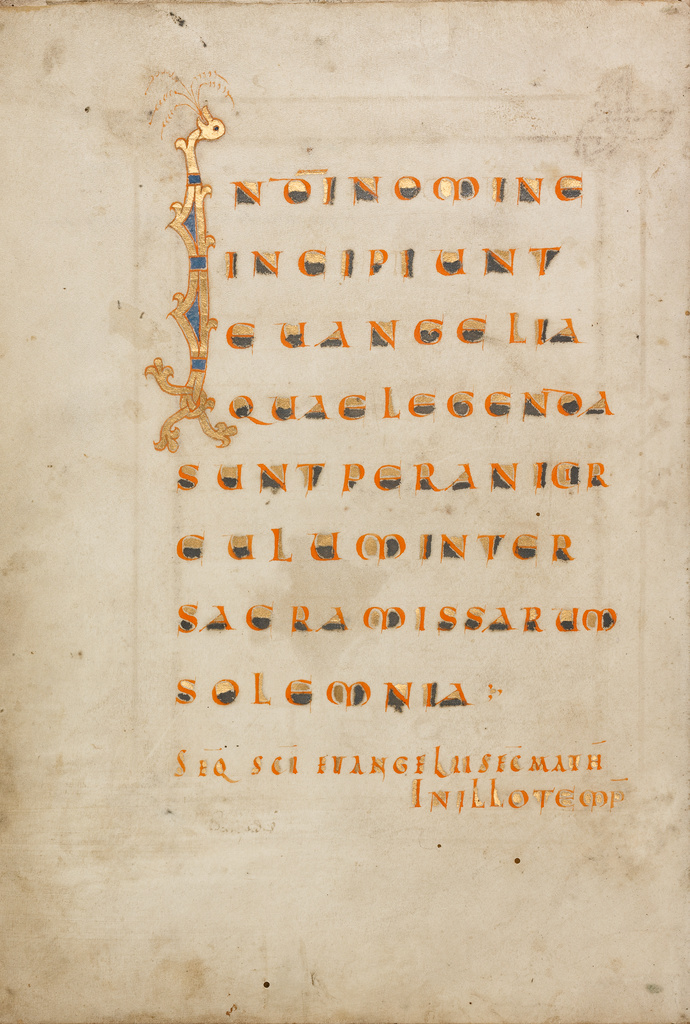 IN DĪ NOMINE
INCIPIUNT
EUANGELIA
QUAE LEGENDA
SUNT PER ANNI CIR
CULUM INTER
SACRA MISSARUM
SOLEMNIA
SEQ̄ SC̄I EVANGELII SEC̄ MATH̄
IN ILLO TEMP̄